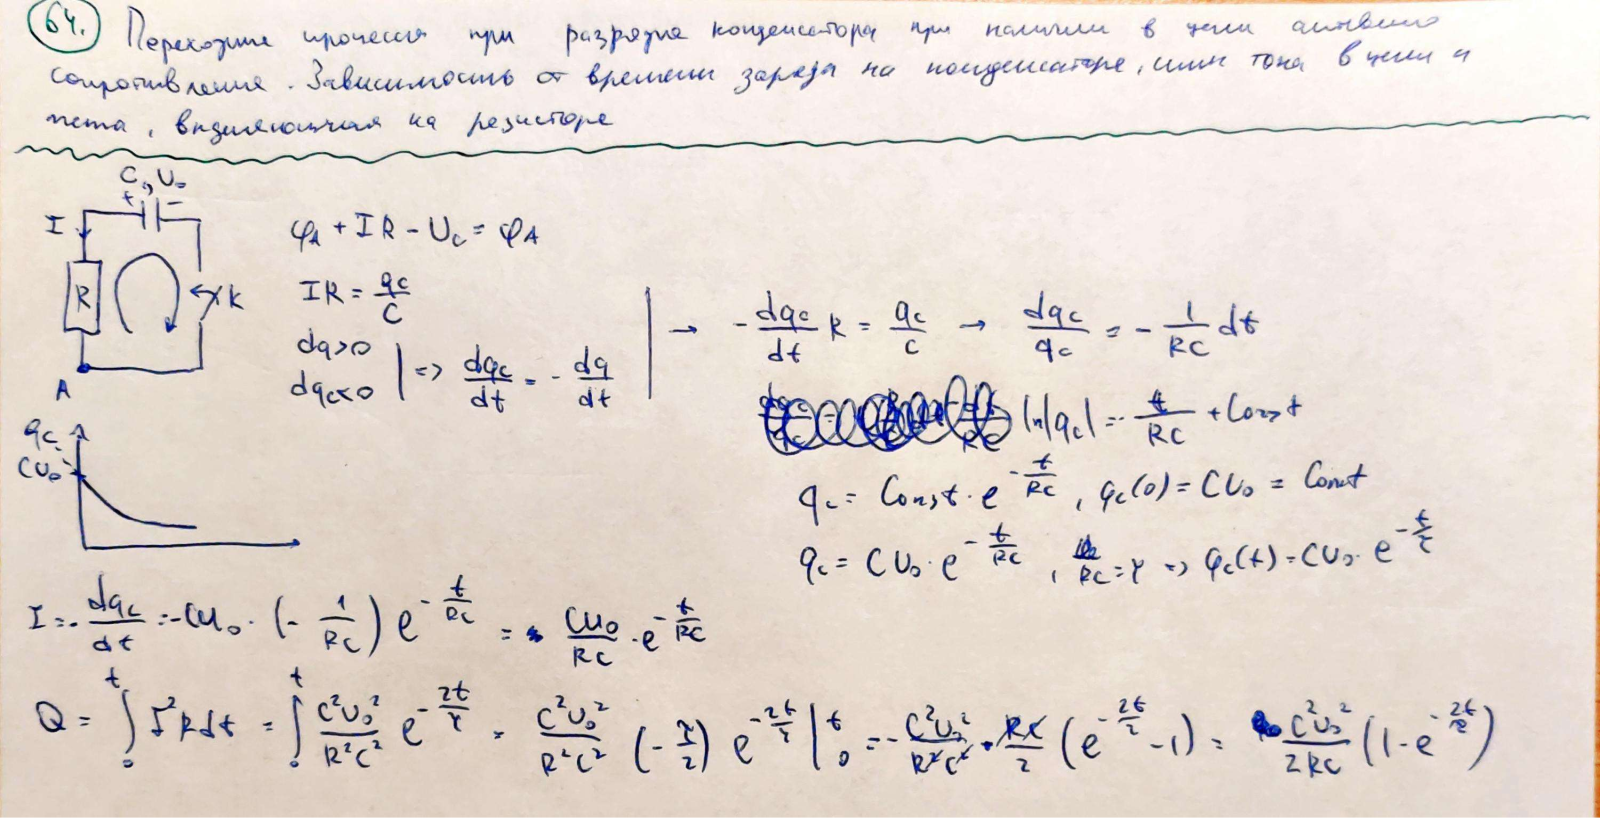 64. Переходные процессы при разрядке конденсатора при наличии в цепи активного
сопротивления. Зависимость от времени заряда на конденсаторе, силы тока в цепи и
тепла, выделяющегося на резисторе
C, U₀
+ −
I
R
K
A
φA + IR − Uc = φA
IR = qc/C
dq>0
dqc<0 | => dqc/dt = − dq/dt
→ − dqc/dt R = qc/C → dqc/qc = − 1/RC dt
ln|qc| = − t/RC + Const
qc = Const · e^(−t/RC), qc(0) = CU₀ = Const
qc = CU₀ · e^(−t/RC), RC = τ => qc(t) = CU₀ · e^(−t/τ)
qc
CU₀
I = − dqc/dt = −CU₀ · (− 1/RC) e^(−t/RC) = CU₀/RC · e^(−t/RC)
Q = ∫₀ᵗ I²Rdt = ∫₀ᵗ C²U₀²/R²C² e^(−2t/τ) = C²U₀²/R²C² (− τ/2) e^(−2t/τ) |₀ᵗ = − C²U₀²/R²C² · RC/2 (e^(−2t/τ) − 1) = C²U₀²/2RC (1 − e^(−2t/τ))